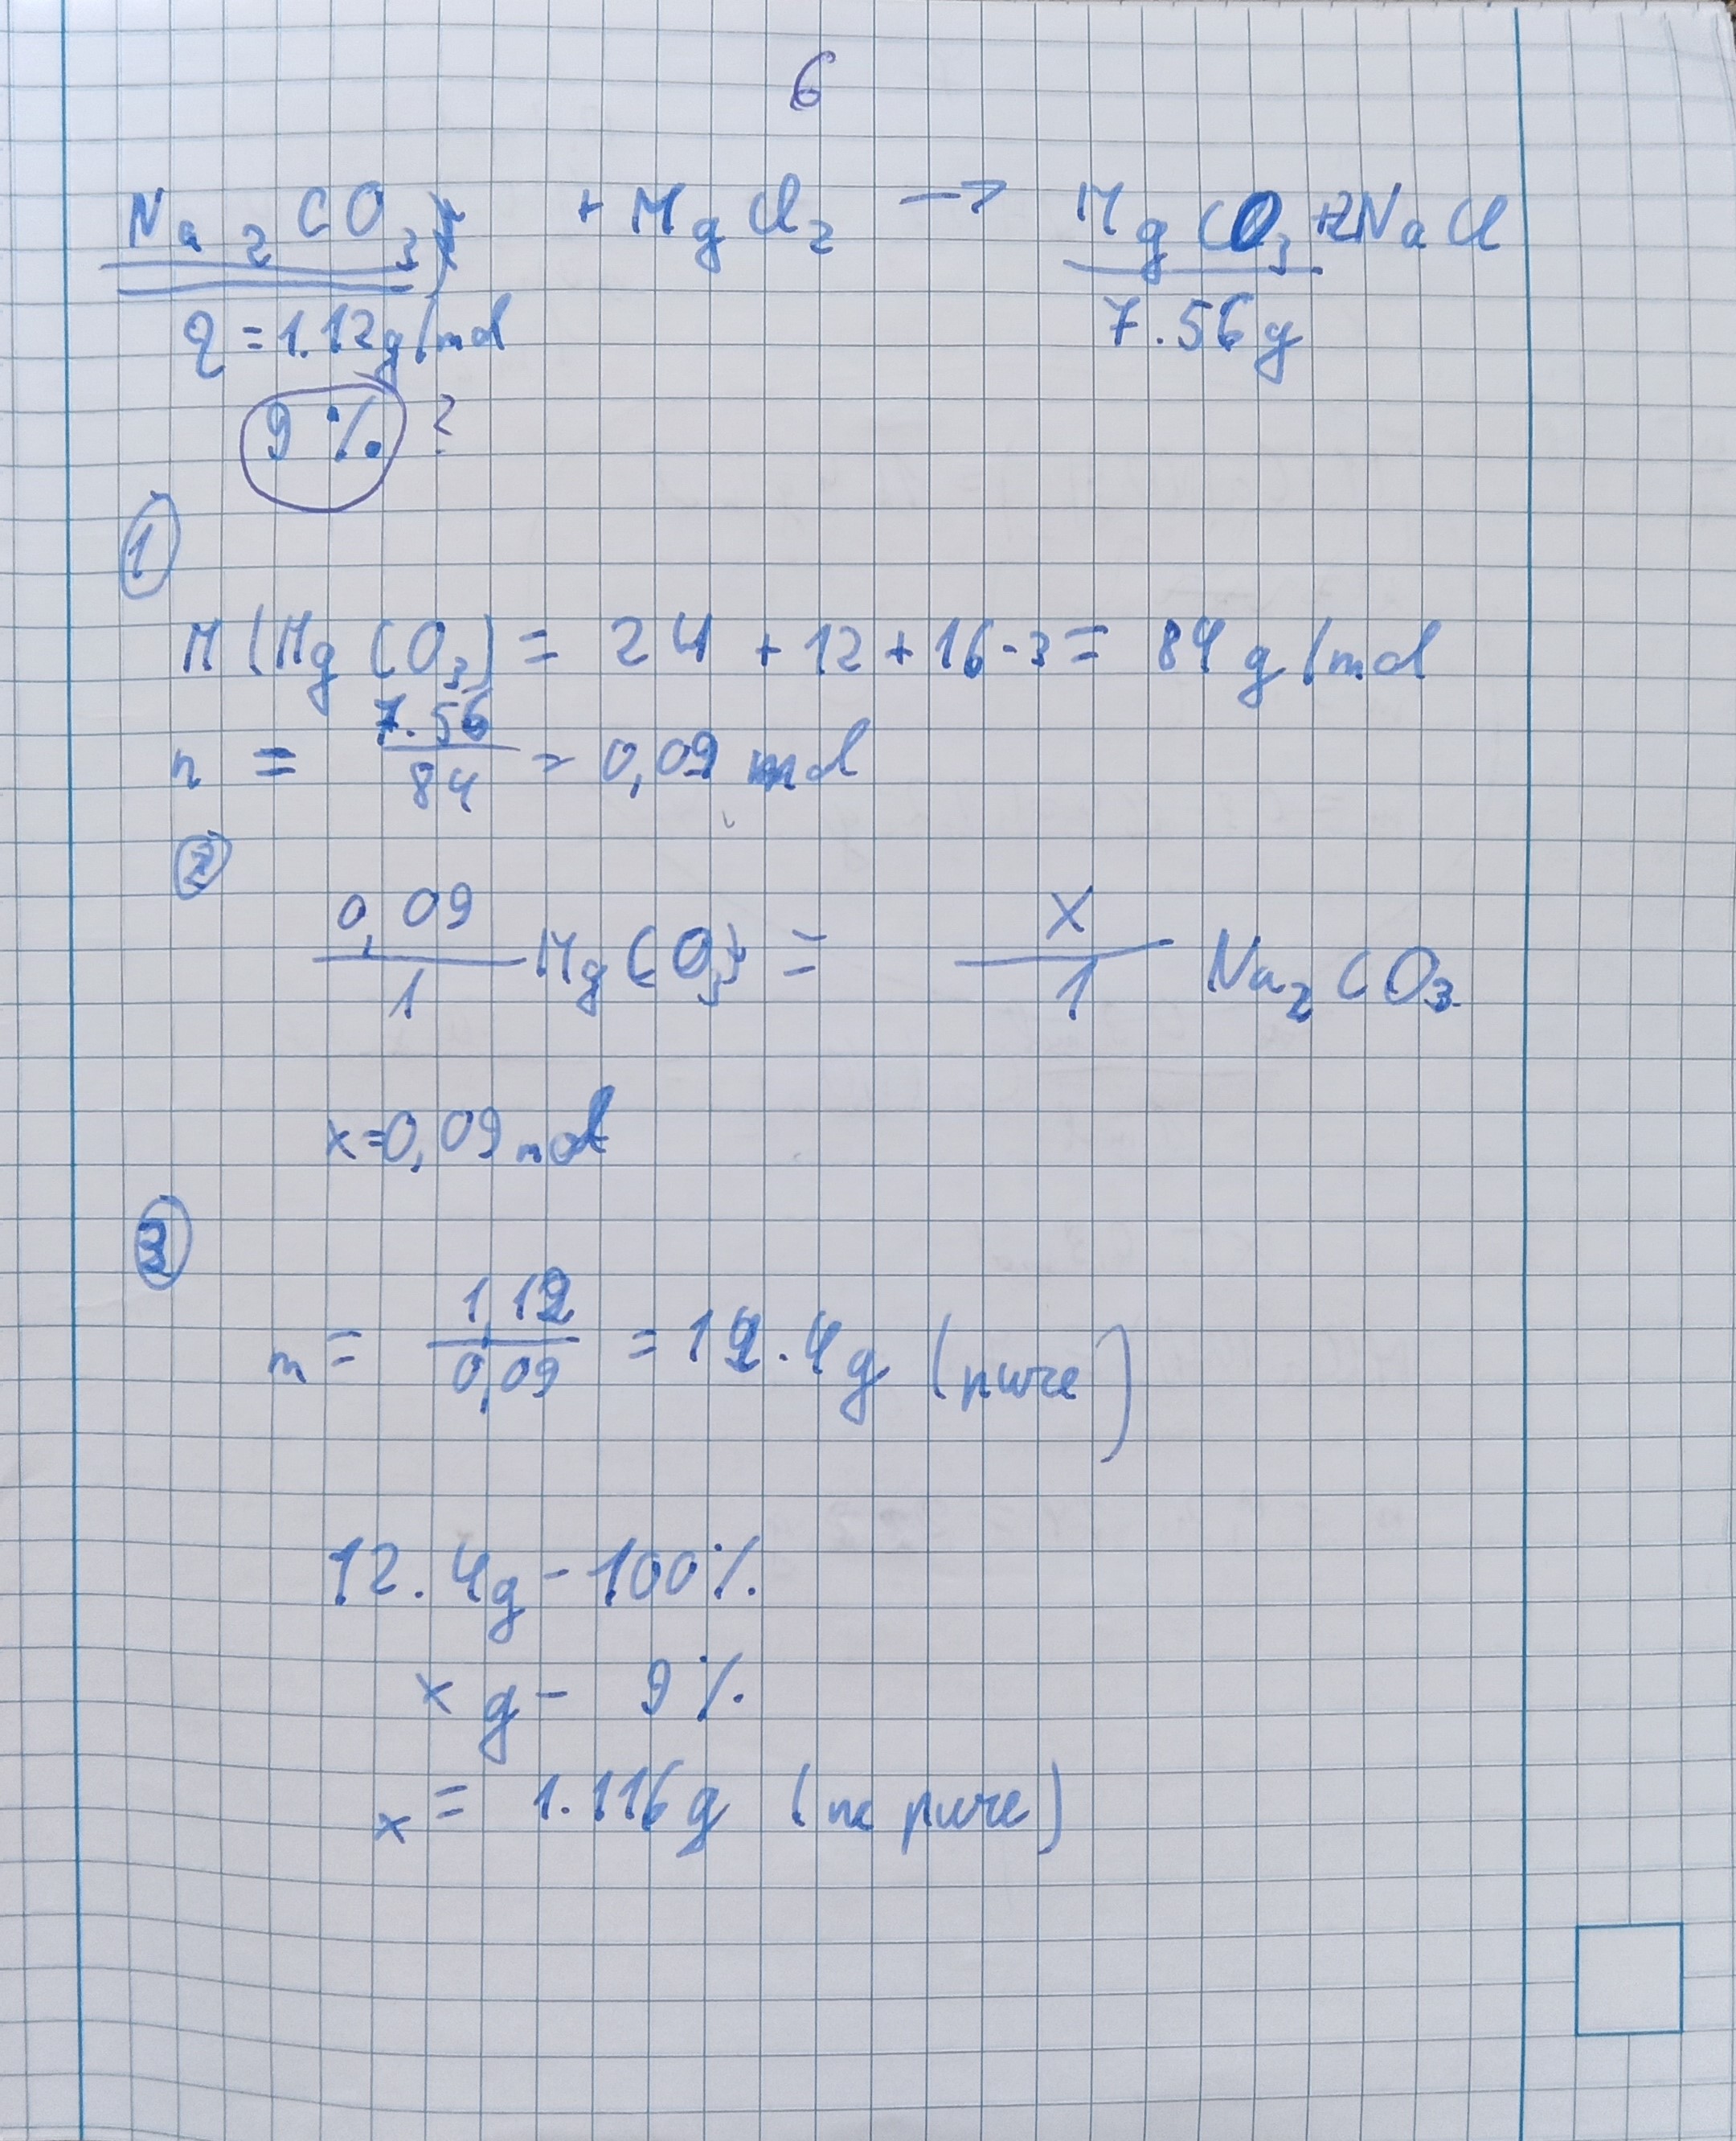 6
Na₂CO₃ + MgCl₂ → MgCO₃ + 2NaCl
ρ = 1.12g/mol 7.56g
9 % ?
①
M(MgCO₃) = 24 + 12 + 16·3 = 84 g/mol
n = 7.56/84 = 0,09 mol
②
0,09/1 MgCO₃ = x/1 Na₂CO₃
x=0,09 mol
③
m = 1,12/0,09 = 12.4g (pure)
12.4g - 100%
x g - 9%
x = 1.116g (ne pure)